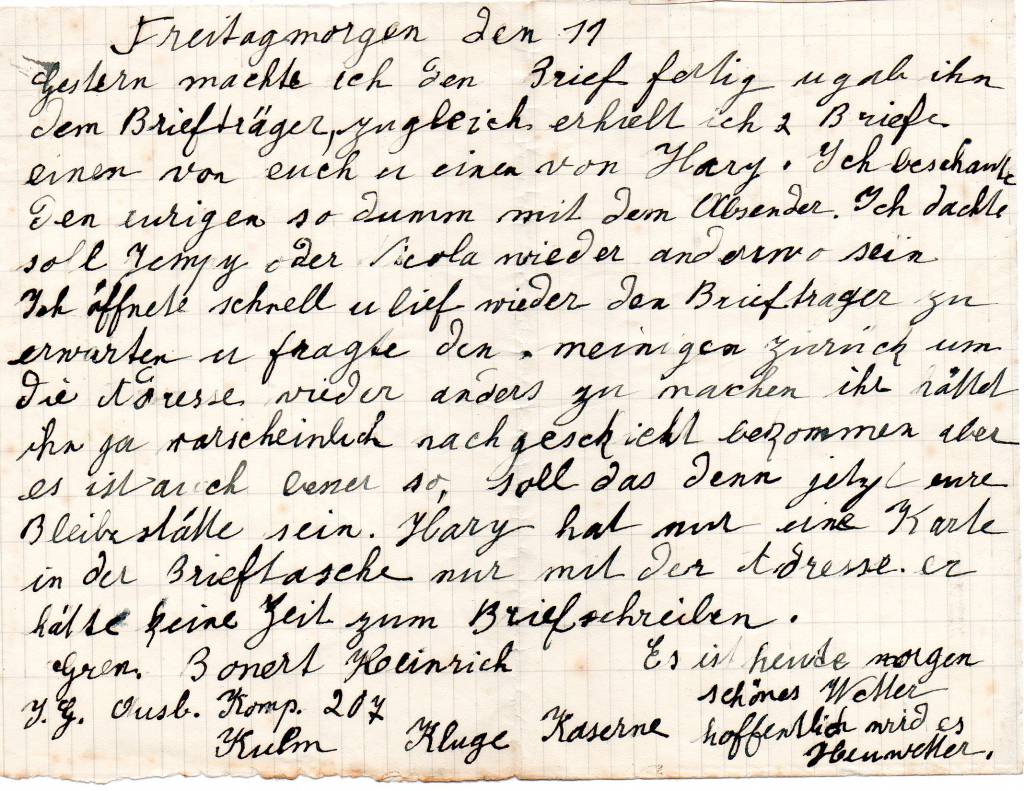 Freitagmorgen den 11
Gestern machte ich den Brief fertig u gab ihn
dem Briefträger, zugleich erhielt ich 2 Briefe
einen von euch u einen von Hary. Ich beschaute
den eurigen so dumm mit dem Absender. Ich dachte
soll Jempy oder Nicola wieder anderswo sein
Ich öffnete schnell u lief wieder den Briefträger zu
erwarten u fragte den meinigen zurück um
die Adresse wieder anders zu machen ihr hättet
ihn ja warscheinlich nachgeschickt bekommen aber
es ist auch besser so, soll das denn jetzt eure
Bleibestätte sein. Hary hat nur eine Karte
in der Brieftasche nur mit der Adresse. er
hätte keine Zeit zum Briefschreiben.
Gren. Bonert Heinrich
J. G. Ausb. Komp. 207
Kulm Kluge Kaserne
Es ist heute morgen
schönes Wetter
hoffentlich wird es
Heuwetter.